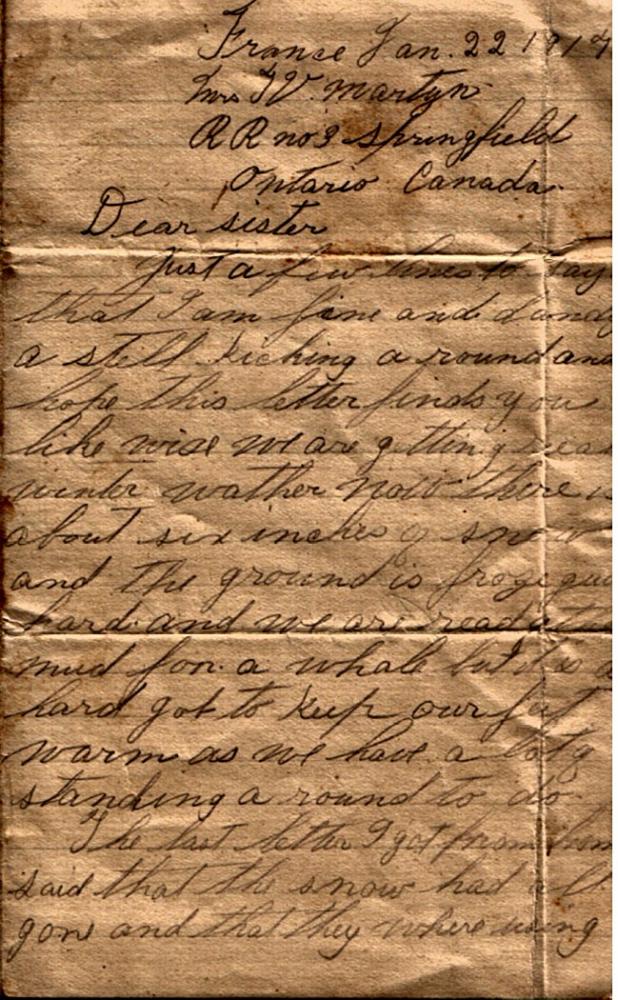 France Jan. 22 1917
Mrs W. Martyn
R R no 3 Springfield
Ontario Canada.
Dear sister
Just a few lines to say
that I am fine and dandy
a stell kicking a round and
hope this letter finds you
like wise we are getting
winter wather now there is
about six inches of snow
and the ground is
hard and we are
mud for. a whale but it is a
hard got to keep our feet
warm as we have a lot of
standing a round to do
The last letter I got from
said that the snow had all
gone and that they where using